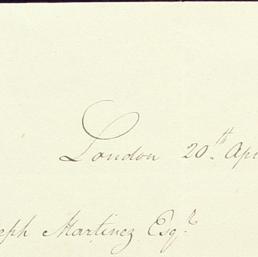 London 20th. Ap
eph Martinez Esqr.